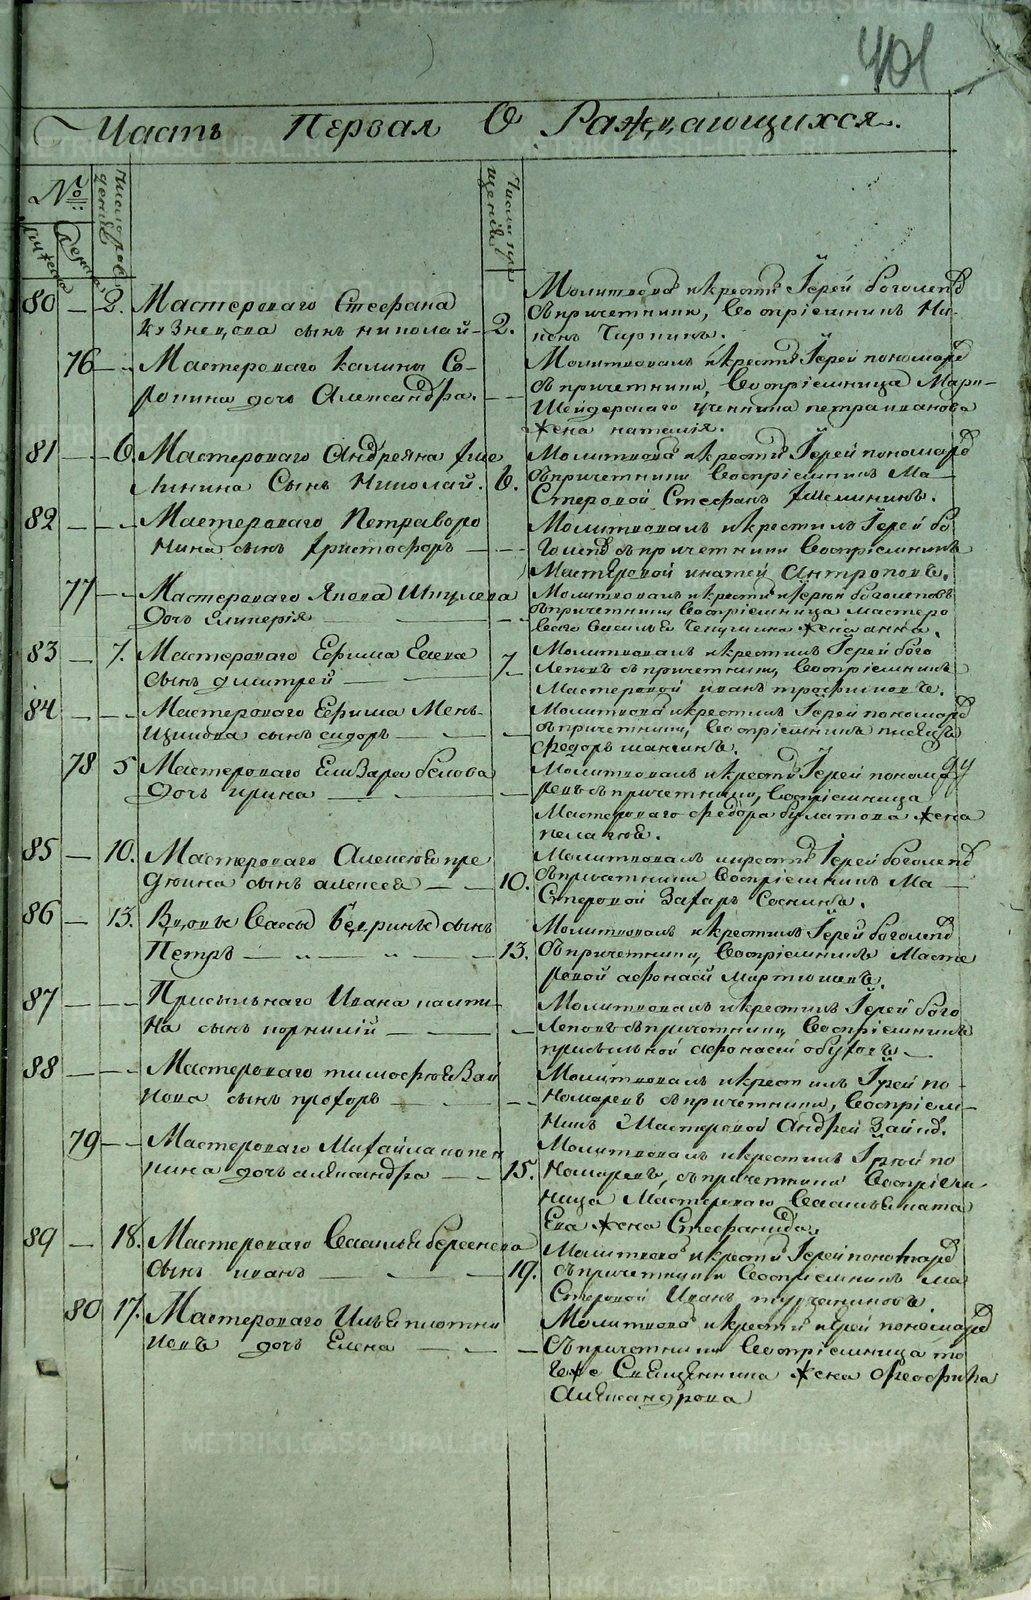 401
Часть Первая О Раждающихся.
№
Число рождения
Число крещения
80 — 2. Мастероваго Стефана
Кузнецова сынъ николай — 2.
Молитвова и крести Іерей боголепо
съ причетники, Воспріемникъ Ни-
конъ
76 — Мастероваго калины Со-
дочь Александра.
Молитвовалъ и крести Іерей пономаре
съ причетники, Воспріемница Марк-
Шейдерскаго ученика петра иванова
жена наталія.
81 — 6. Мастероваго Андреяна
Сынъ Николай. 6.
Молитвова и крести Іерей пономаре
съ причетники Воспріемникъ Ма-
стеровой Стефанъ
82 — Мастероваго Петра воро
нина сынъ христофоръ
Молитвовалъ и крестилъ Іерей бо
голепо съ причетники Воспріемникъ
Мастеровой Антроповъ.
77 — Мастероваго Якова Шпулева
дочь Гликерія
Молитвовалъ и крести Іерей боголеповъ
съ причетники Воспріемница мастеро
ваго василья жена анна.
83 — 7. Мастероваго Ефима Елева
сынъ дмитрей — 7
Молитвовалъ и крестилъ Іерей бого
леповъ съ причетники, Воспріемникъ
Мастеровой иванъ трофимовъ.
84 — Мастероваго Ефима Мень-
щикова сынъ сидоръ
Молитвова и крестилъ Іерей пономаре
съ причетники, Воспріемникъ
федоръ
78 5 Мастероваго Елизара белова
дочь ирина
Молитвовалъ и крести Іерей понома
ревъ съ причетники, Воспріемница
Мастероваго федора булатова жена
пелагея.
85 — 10. Мастероваго Алексея пре
дкина сынъ алексей — 10.
Молитвовалъ и крести Іерей боголепо
съ причетники Воспріемникъ Ма-
стеровой Захаръ Соснинъ.
86 — 13. Вдовы Вассы сынъ
Петръ — 13.
Молитвовалъ и крестилъ Іерей боголепо
съ причетники, Воспріемникъ Масте
ровой афонасей мартюшевъ.
87 — Присыльнаго Ивана
сынъ корнилій
Молитвовалъ и крестилъ Іерей бого
леповъ съ причетники, Воспріемникъ
присыльной афонасей
88 — Мастероваго тимофея Зай
кова сынъ прохоръ
Молитвовалъ и крестилъ Іерей по-
номаревъ съ причетники, Воспріем-
никъ Мастеровой Андрей Зайко.
79 — Мастероваго Михайла копен
кина дочь александра — 15.
Молитвовалъ и крестилъ Іерей по
номаревъ, съ причетники Воспріем-
ница Мастероваго Василья
жена Стефанида.
89 — 18. Мастероваго Василья берсенева
сынъ иванъ — 19.
Молитвова и крести Іерей пономаре
съ причетники Воспріемникъ ма
стеровой Иванъ турчаниновъ.
80 17. Мастероваго Ильи плотни
ковъ дочь Елена
Молитвова и крести Іерей пономаре
съ причетники Воспріемница то
гоже Священника жена Феофила
Александрова